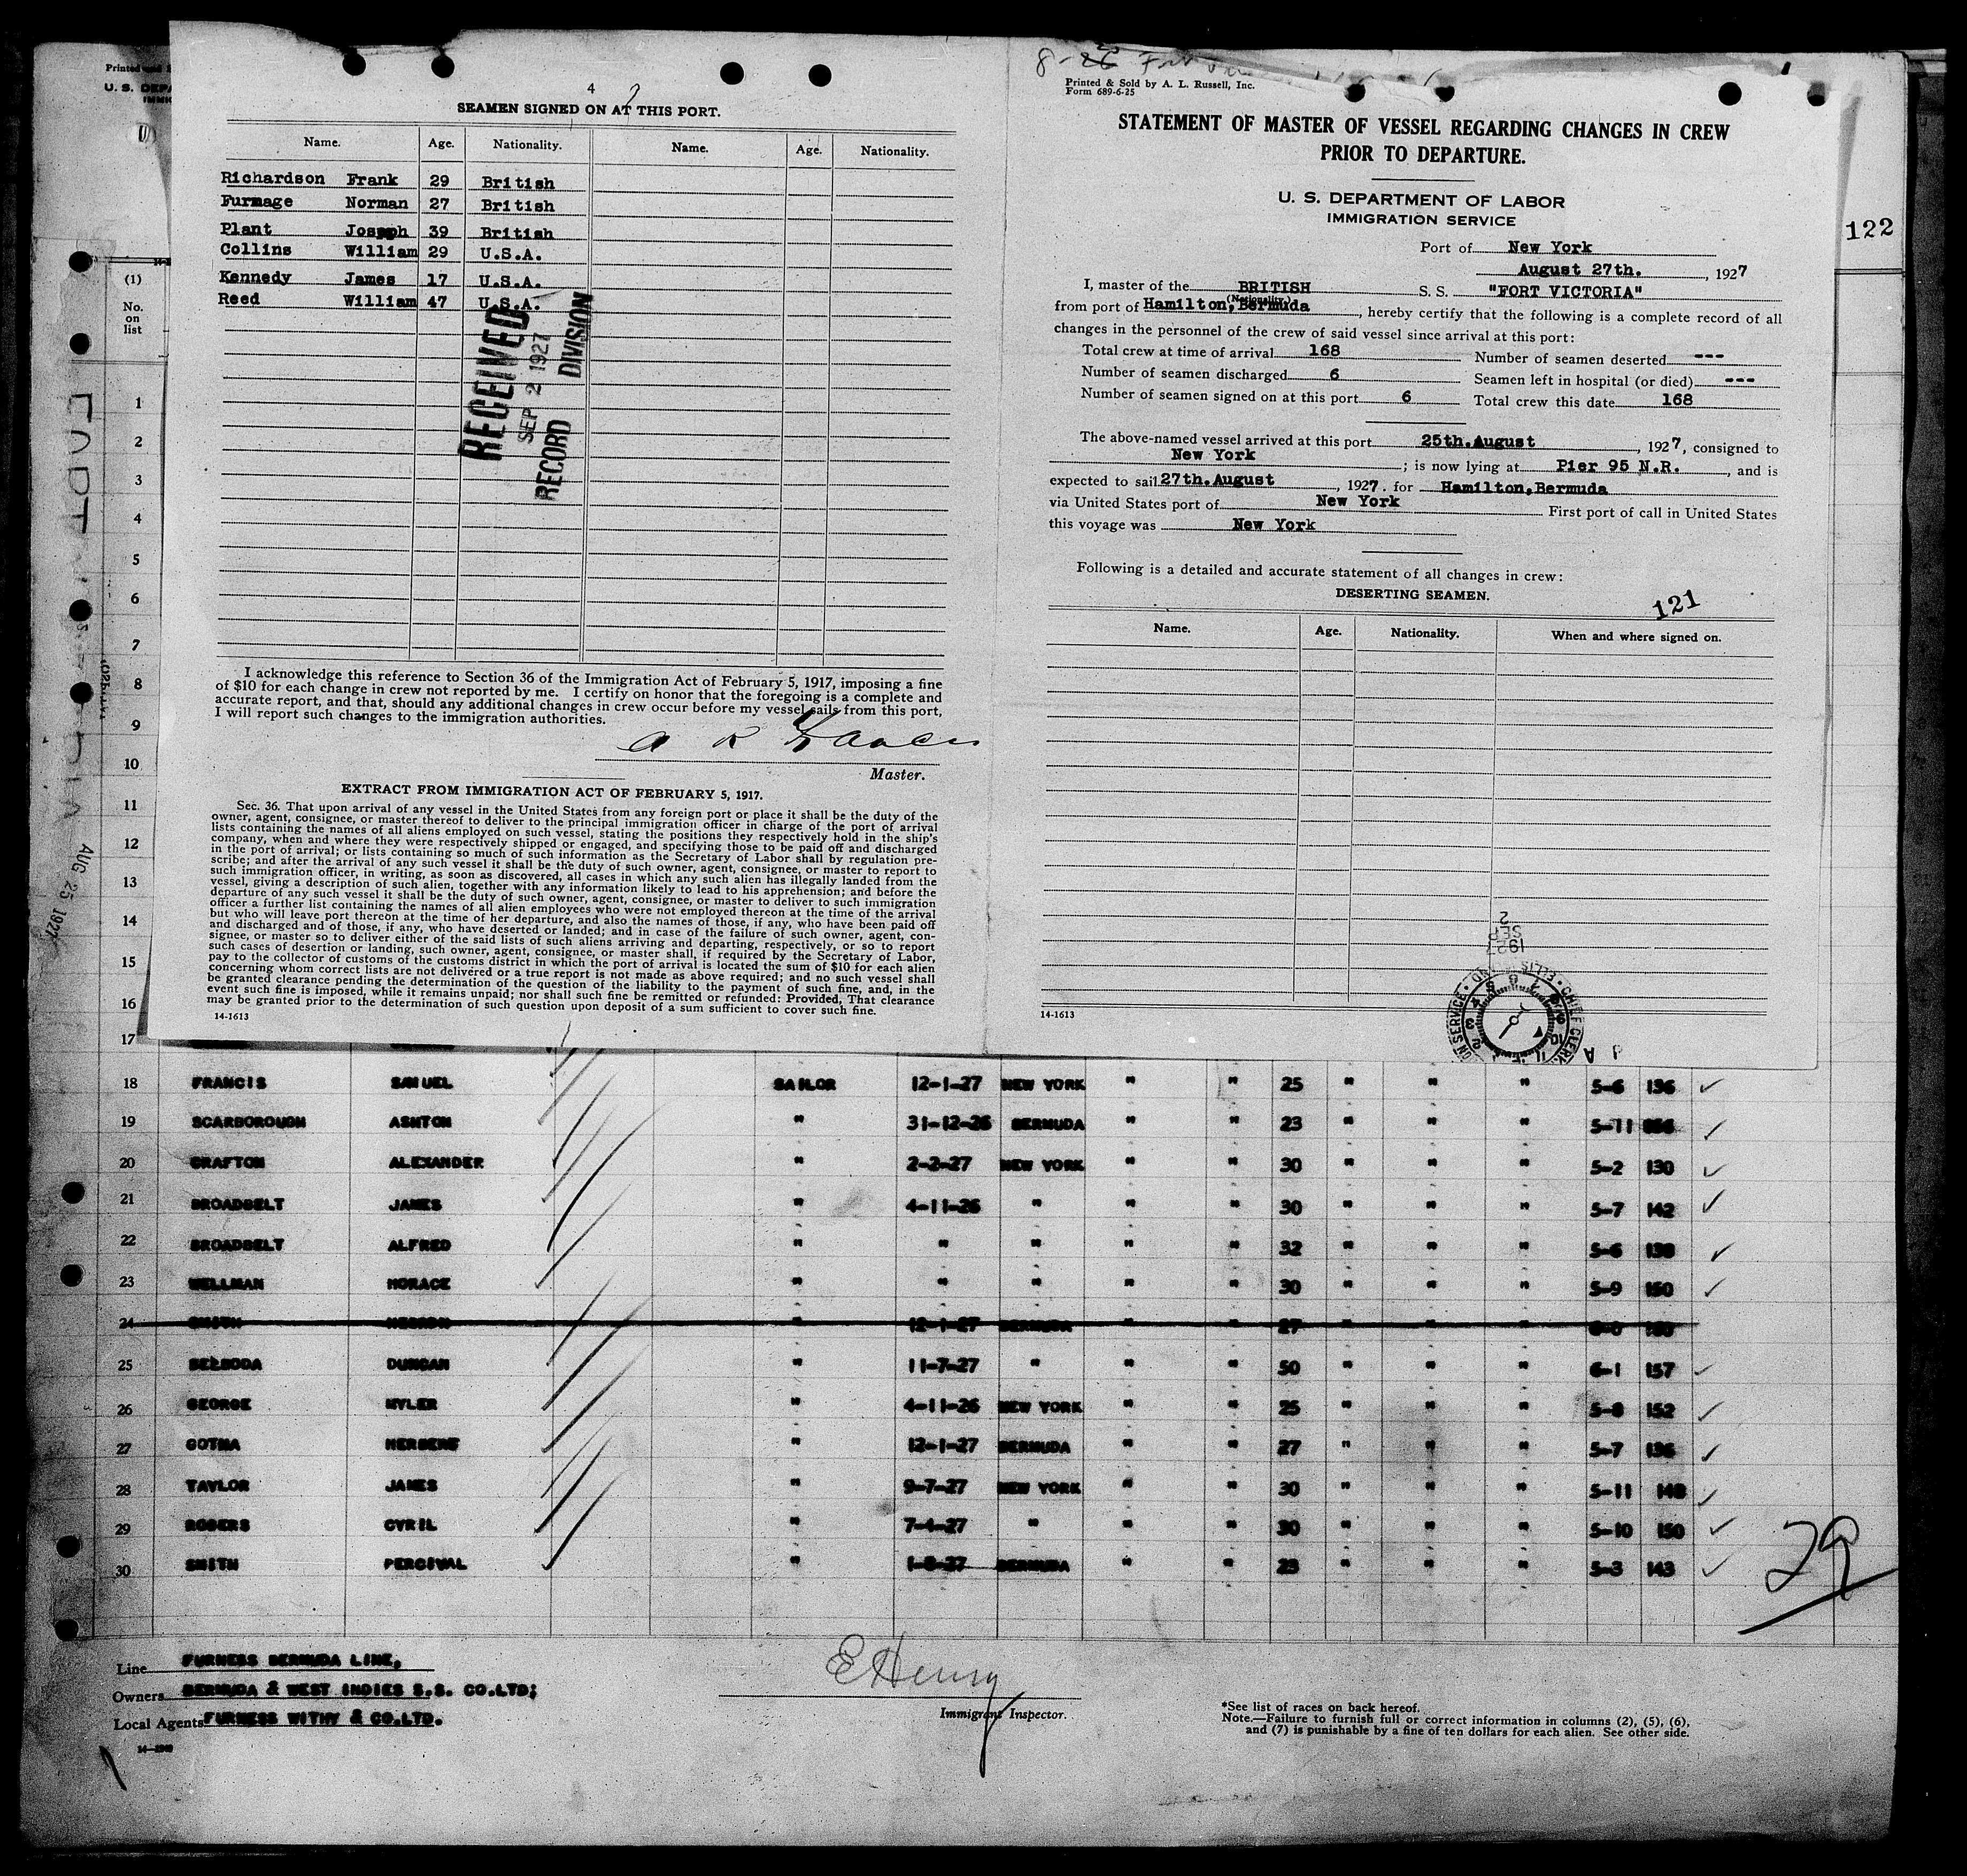 4
SEAMEN SIGNED ON AT THIS PORT.
Name. Age. Nationality. Name. Age. Nationality.
Richardson Frank 29 British
Furmage Norman 27 British
Plant Joseph 39 British
Collins William 29 U.S.A.
Kennedy James 17 U.S.A.
Reed William 47 U.S.A.
RECEIVED
SEP 2 1927
RECORD DIVISION
I acknowledge this reference to Section 36 of the Immigration Act of February 5, 1917, imposing a fine
of $10 for each change in crew not reported by me. I certify on honor that the foregoing is a complete and
accurate report, and that, should any additional changes in crew occur before my vessel sails from this port,
I will report such changes to the immigration authorities.
A R
Master.
EXTRACT FROM IMMIGRATION ACT OF FEBRUARY 5, 1917.
Sec. 36. That upon arrival of any vessel in the United States from any foreign port or place it shall be the duty of the
owner, agent, consignee, or master thereof to deliver to the principal immigration officer in charge of the port of arrival
lists containing the names of all aliens employed on such vessel, stating the positions they respectively hold in the ship's
company, when and where they were respectively shipped or engaged, and specifying those to be paid off and discharged
in the port of arrival; or lists containing so much of such information as the Secretary of Labor shall by regulation pre-
scribe; and after the arrival of any such vessel it shall be the duty of such owner, agent, consignee, or master to report to
such immigration officer, in writing, as soon as discovered, all cases in which any such alien has illegally landed from the
vessel, giving a description of such alien, together with any information likely to lead to his apprehension; and before the
departure of any such vessel it shall be the duty of such owner, agent, consignee, or master to deliver to such immigration
officer a further list containing the names of all alien employees who were not employed thereon at the time of the arrival
but who will leave port thereon at the time of her departure, and also the names of those, if any, who have been paid off
and discharged and of those, if any, who have deserted or landed; and in case of the failure of such owner, agent, con-
signee, or master so to deliver either of the said lists of such aliens arriving and departing, respectively, or so to report
such cases of desertion or landing, such owner, agent, consignee, or master shall, if required by the Secretary of Labor,
pay to the collector of customs of the customs district in which the port of arrival is located the sum of $10 for each alien
concerning whom correct lists are not delivered or a true report is not made as above required; and no such vessel shall
be granted clearance pending the determination of the question of the liability to the payment of such fine, and, in the
event such fine is imposed, while it remains unpaid; nor shall such fine be remitted or refunded: Provided, That clearance
may be granted prior to the determination of such question upon deposit of a sum sufficient to cover such fine.
14-1613
Printed & Sold by A. L. Russell, Inc.
Form 689-6-25
STATEMENT OF MASTER OF VESSEL REGARDING CHANGES IN CREW
PRIOR TO DEPARTURE.
U. S. DEPARTMENT OF LABOR
IMMIGRATION SERVICE
Port of New York
August 27th. , 1927
I, master of the BRITISH S. S. "FORT VICTORIA"
(Nationality.)
from port of Hamilton, Bermuda , hereby certify that the following is a complete record of all
changes in the personnel of the crew of said vessel since arrival at this port:
Total crew at time of arrival 168 Number of seamen deserted ---
Number of seamen discharged 6 Seamen left in hospital (or died) ---
Number of seamen signed on at this port 6 Total crew this date 168
The above-named vessel arrived at this port 25th. August , 1927, consigned to
New York ; is now lying at Pier 95 N.R. , and is
expected to sail 27th. August , 1927. for Hamilton, Bermuda
via United States port of New York First port of call in United States
this voyage was New York
Following is a detailed and accurate statement of all changes in crew:
DESERTING SEAMEN.
121
Name. Age. Nationality. When and where signed on.
1927
SEP
2
CHIEF CLERK
14-1613
122
Printed
U. S.
(1)
No.
on
list
AUG 25 1927
1
2
3
4
5
6
7
8
9
10
11
12
13
14
15
16
17
18 FRANCIS SAMUEL SAILOR 12-1-27 NEW YORK " " 25 " " " 5-6 136 ✓
19 SCARBOROUGH ASHTON " 31-12-26 BERMUDA " " 23 " " " 5-11 ✓
20 GRAFTON ALEXANDER " 2-2-27 NEW YORK " " 30 " " " 5-2 130 ✓
21 BROADBELT JAMES " 4-11-26 " " " 30 " " " 5-7 142 ✓
22 BROADBELT ALFRED " " " " " 32 " " " 5-6 138 ✓
23 WELLMAN HORACE " " " " " 30 " " " 5-9 150 ✓
24 SMITH " 12-1-27 BERMUDA " " 27 " " "
25 DUNCAN " 11-7-27 " " " 50 " " " 6-1 157 ✓
26 GEORGE MYLER " 4-11-26 NEW YORK " " 25 " " " 5-8 152 ✓
27 GOTHA HERBERT " 12-1-27 BERMUDA " " 27 " " " 5-7 136 ✓
28 TAYLOR JAMES " 9-7-27 NEW YORK " " 30 " " " 5-11 148 ✓
29 ROGERS CYRIL " 7-4-27 " " " 30 " " " 5-10 150 ✓
30 SMITH PERCIVAL " 1-8-27 BERMUDA " " 23 " " " 5-3 143 ✓
29
Line FURNESS BERMUDA LINE,
Owners BERMUDA & WEST INDIES S.S. CO.LTD;
Local Agents FURNESS WITHY & CO.LTD.
E Henry
Immigrant Inspector.
*See list of races on back hereof.
Note.—Failure to furnish full or correct information in columns (2), (5), (6),
and (7) is punishable by a fine of ten dollars for each alien. See other side.